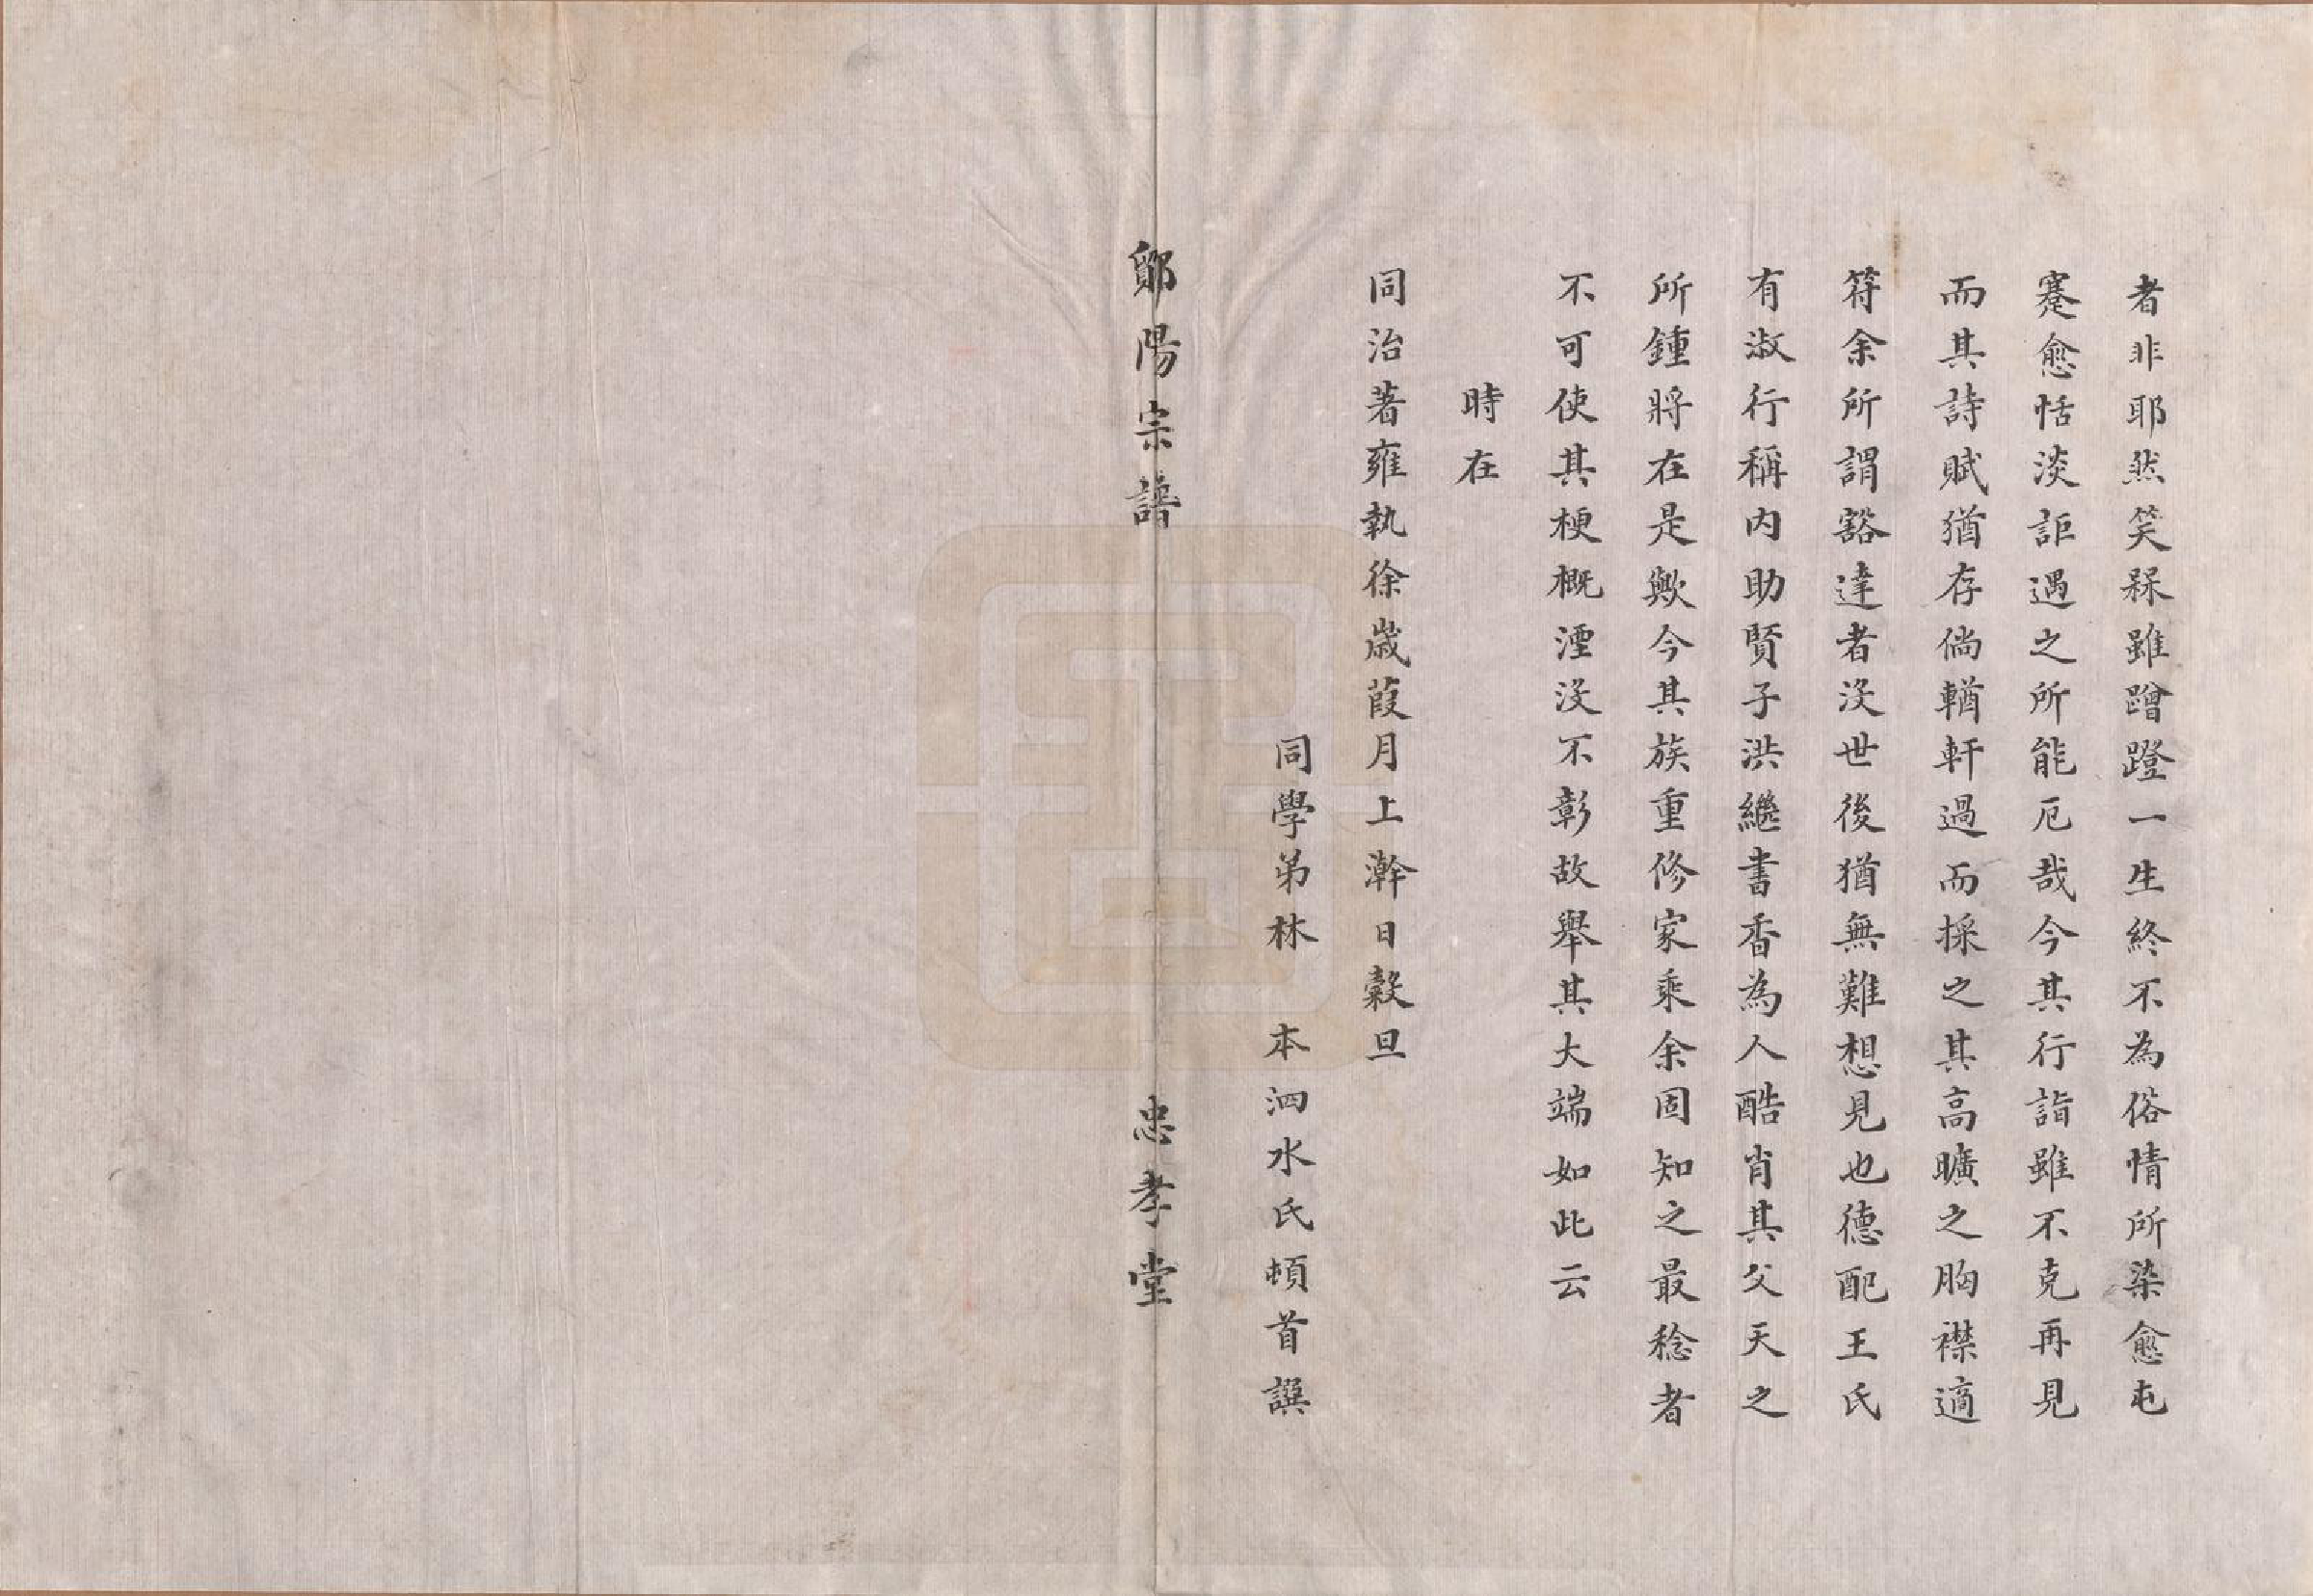 者非耶然笑槑雖蹭蹬一生終不為俗情所染愈屯
蹇愈恬淡詎遇之所能厄哉今其行詣雖不克再見
而其詩賦猶存倘輶軒過而採之其高曠之胸襟適
符余所謂豁達者沒世後猶無難想見也德配王氏
有淑行稱内助賢子洪繼書香為人酷肖其父天之
所鍾將在是歟今其族重修家乘余固知之最稔者
不可使其梗概湮沒不彰故舉其大端如此云
時在
同治著雍執徐歲葭月上澣日穀旦
同學弟林 本泗水氏頓首譔
鄖陽宗譜 忠孝堂